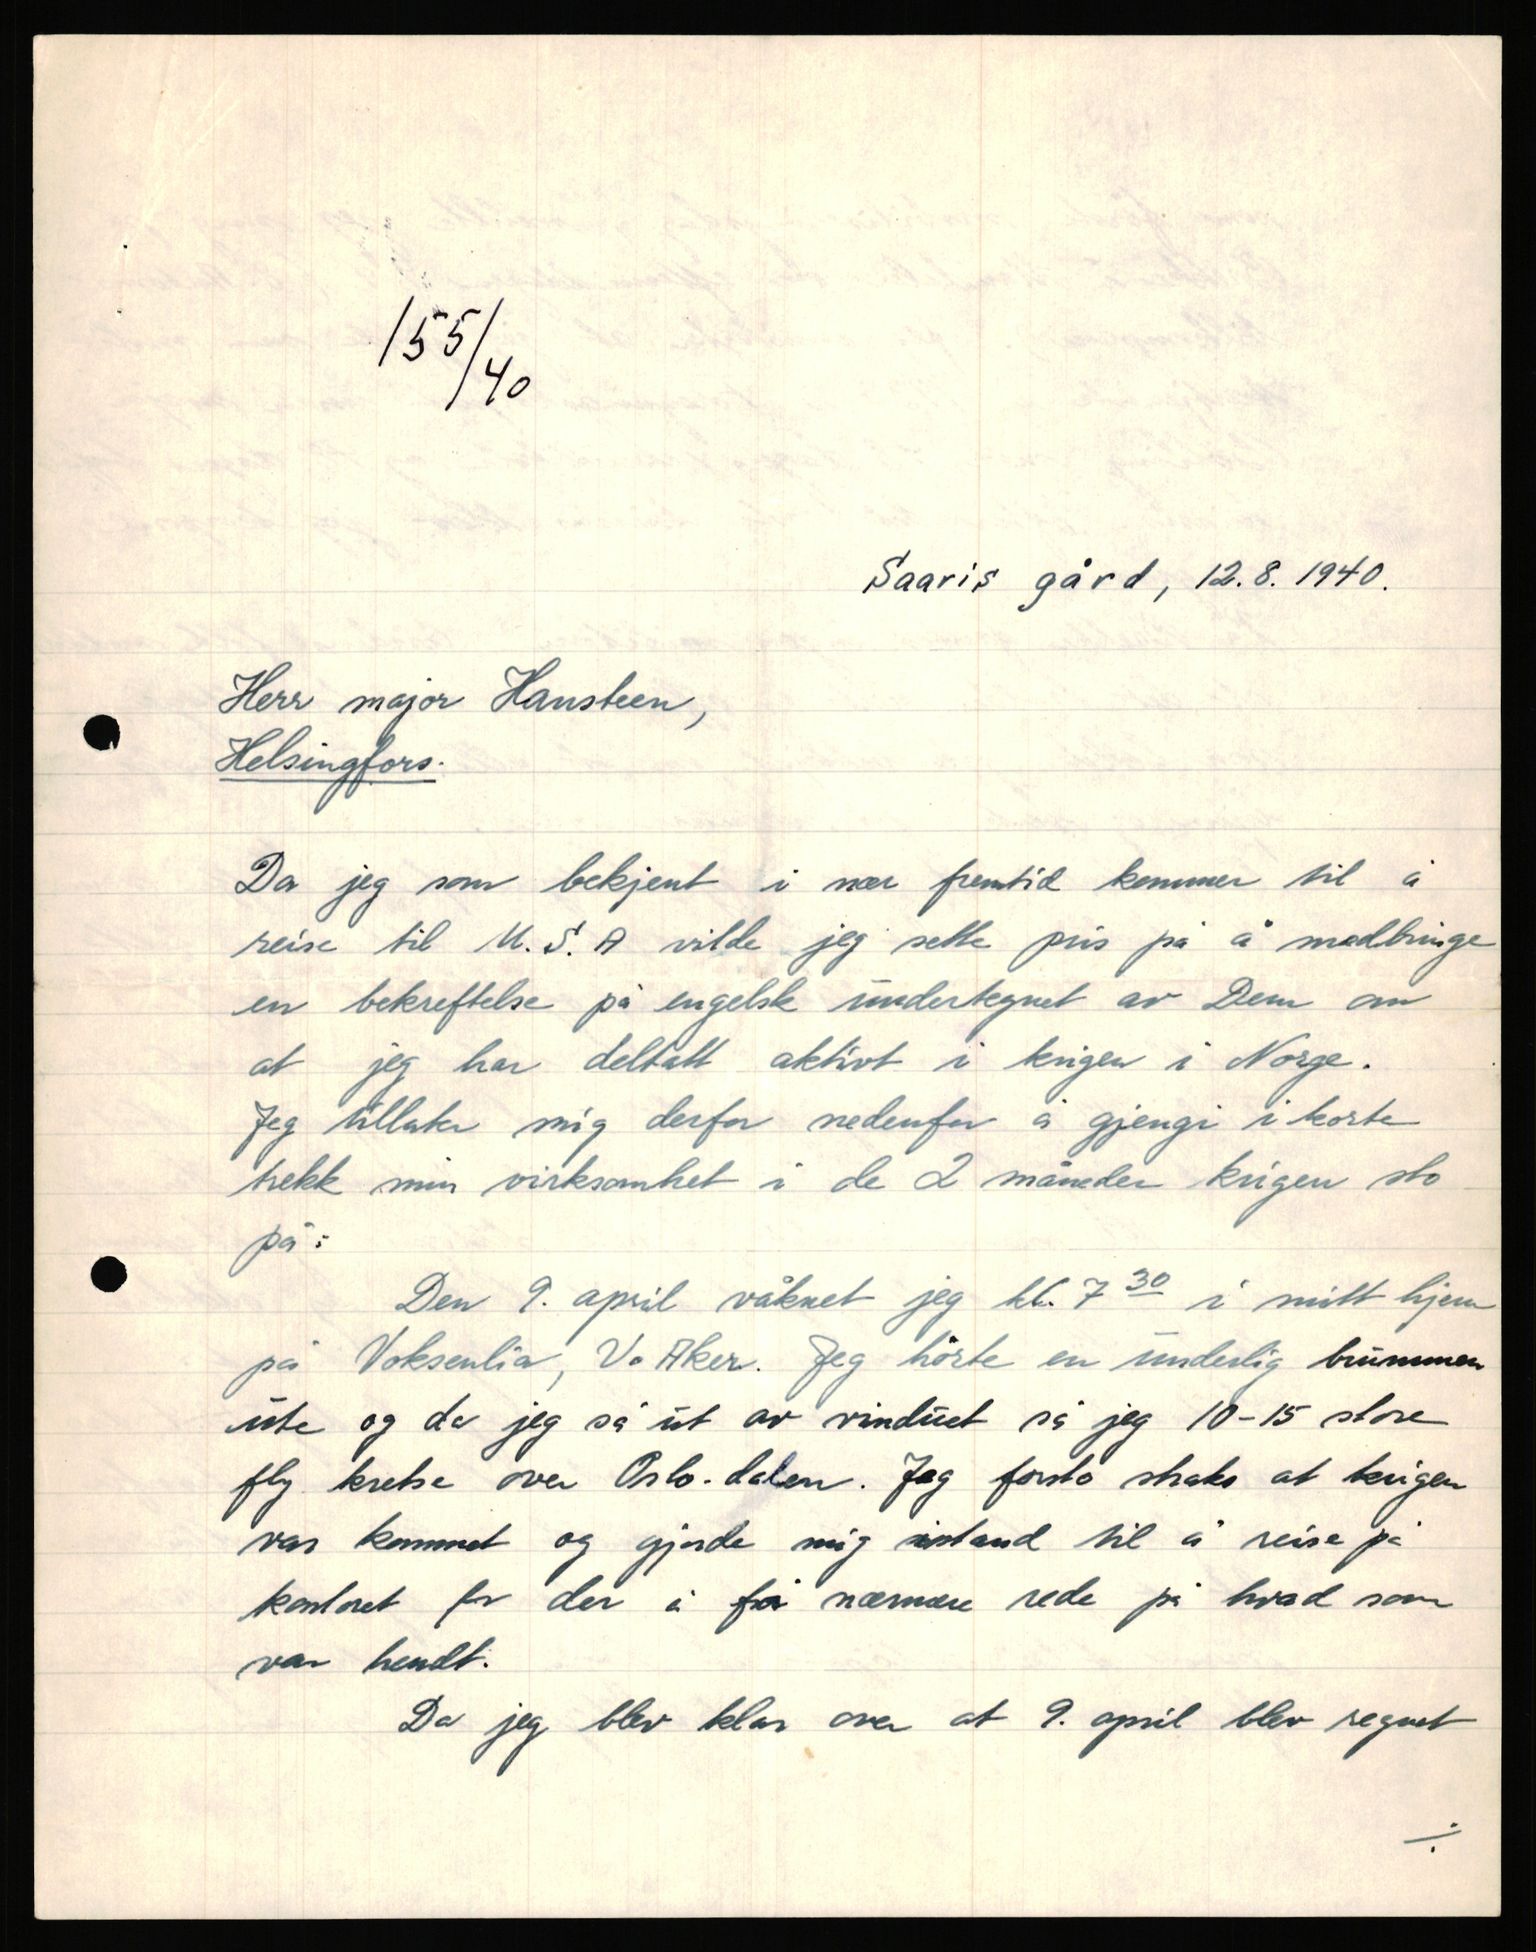 155/40
Saaris gård, 12.8.1940.
Herr major Hansteen,
Helsingfors.
Da jeg som bekjent i nær fremtid kommer til å
reise til U.S.A vilde jeg sette pris på å medbringe
en bekreftelse på engelsk undertegnet av Dem om
at jeg har deltatt aktivt i krigen i Norge.
Jeg tillater mig derfor nedenfor å gjengi i korte
trekk min virksomhet i de 2 måneder krigen sto
på:
Den 9. april våknet jeg kl. 7 30 i mitt hjem
på Voksenlia, V. Aker. Jeg hørte en underlig brummen
ute og da jeg så ut av vinduet så jeg 10-15 store
fly kretse over Oslo-dalen. Jeg forsto straks at krigen
var kommet og gjorde mig istand til å reise på
kontoret for der å få nærmere rede på hvad som
var hendt.
Da jeg blev klar over at 9. april blev regnet
./.